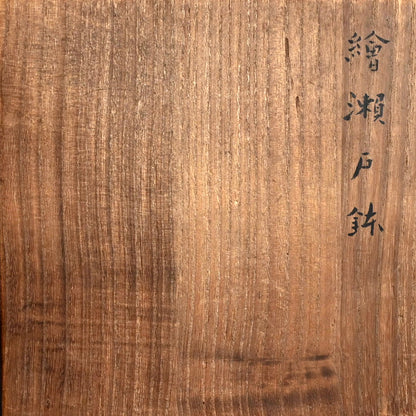 繪瀬戸鉢